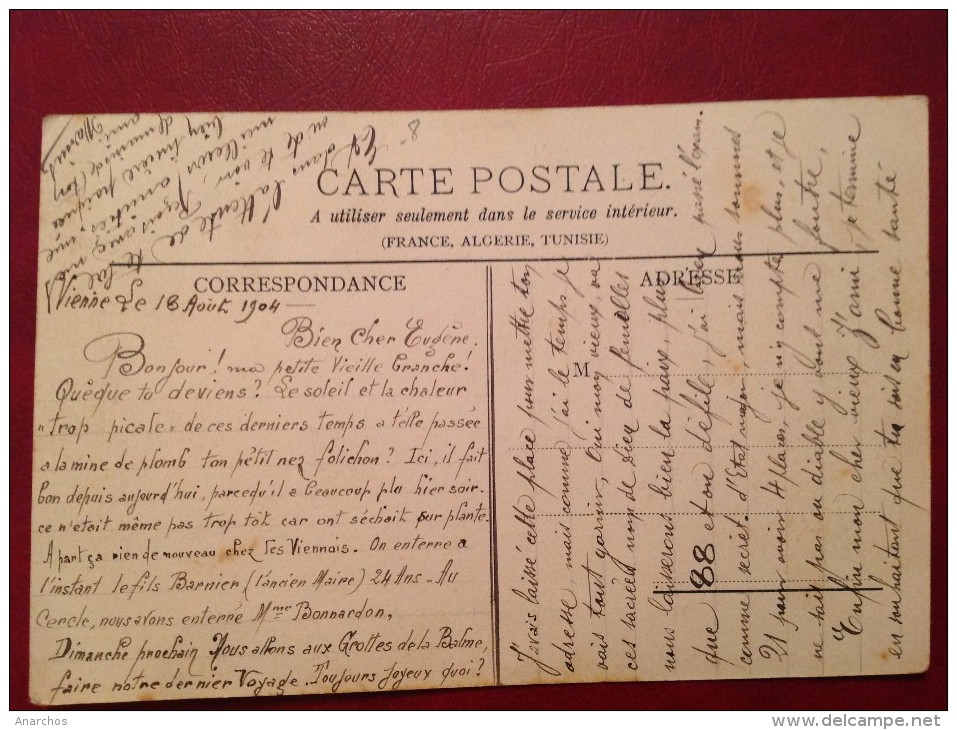 CARTE POSTALE.
A utiliser seulement dans le service intérieur.
(FRANCE, ALGERIE, TUNISIE)
CORRESPONDANCE
ADRESSE
M
Vienne Le 18 Août 1904
Bien Cher Eugène.
Bonjour! ma petite Vieille branche!
Quèque tu deviens? Le soleil et la chaleur
"trop picale" de ces derniers temps a t'elle passée
a la mine de plomb ton pétit nez folichon? Ici, il fait
bon depuis aujourd'hui, parcequ'il a beaucoup plu hier soir.
ce n'etait même pas trop tôt car ont séchait sur plante.
A part ça rien de nouveau chez les Viennois. On enterre a
l'instant le fils Barnier (l'ancien Maire) 24 Ans - Au
Cercle, nous avons enterré Mme Bonnardon,
Dimanche prochain Nous allons aux Grottes de la Balme,
faire notre dernier Voyage. Toujours Joyeux quoi?
J'avais laissé cette place pour mettre ton
adresse, mais comme j'ai le temps je
vais tout garnir, Oui mon vieux, va
ces sacrés nom de Dieu de femelles
nous laisseront bien la paix, plus
que 88 et on défile, j'ai bien passé l'exam.
comme secret. d'Etat major, mais nous sommes
21 pour avoir 4 places, je n'y compte plus, et je
ne sais pas ou diable y vont me foutre,
Enfin mon cher vieux Zami je termine
en souhaitant que tu sois en bonne santé
Et dans l'attente de
te lire
ou de te voir, Reçois avec mes
meilleurs amitiés, une
bien sincère poignée
de mains de ton
ami
Marius
Anarchos
http://www.delcampe.net